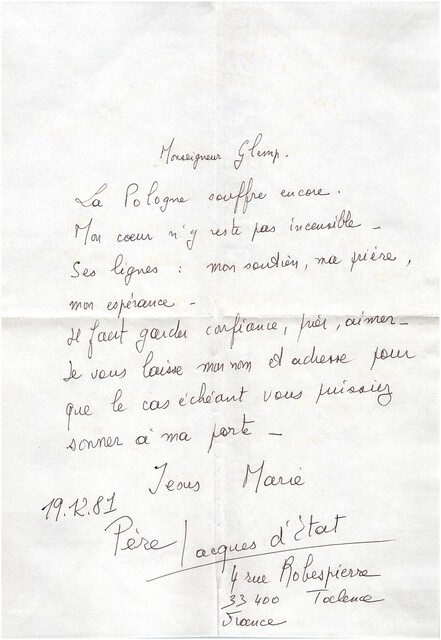 Monseigneur Glemp.
La Pologne souffre encore.
Mon coeur n'y reste pas incensible –
Ses lignes : mon soutien, ma prière,
mon espérance –
Il faut garder confiance, prier, aimer –
Je vous laisse mon nom et adresse pour
que le cas échéant vous puissiez
sonner à ma porte –
Jesus Marie
19.12.81
Père Jacques d'Etat
4 rue Robespierre
33400 Talence
France